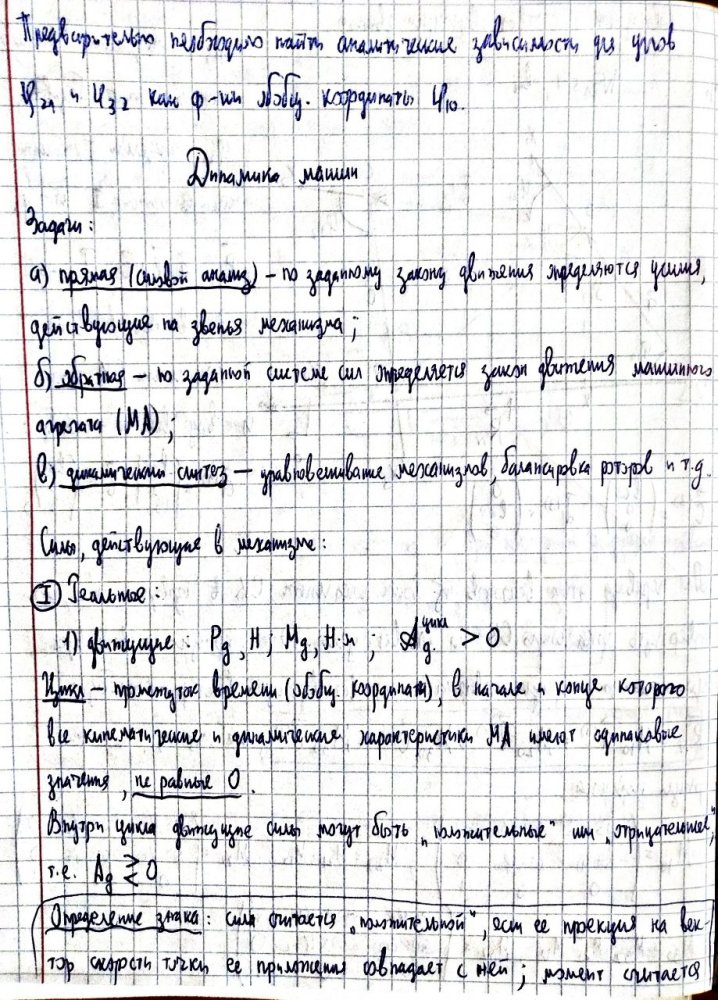 Предварительно необходимо найти аналитические зависимости для углов
φ₂₁ и φ₃₂ как ф-ии обобщ. координаты φ₁₀.
Динамика машин
Задачи:
а) прямая (силовой анализ) – по заданному закону движения определяются усилия,
действующие на звенья механизма;
б) обратная – по заданной системе сил определяется закон движения машинного
агрегата (МА);
в) динамический синтез – уравновешивание механизмов, балансировка роторов и т.д.
Силы, действующие в механизме:
I Реальные:
1) движущие: Pд, Н; Mд, Н·м; Aд.цикл > 0
Цикл – промежуток времени (обобщ. координаты), в начале и конце которого
все кинематические и динамические характеристики МА имеют одинаковые
значения, не равные 0.
Внутри цикла движущие силы могут быть „положительные" или „отрицательные",
т.е. Aд ≷ 0
Определение знака: сила считается „положительной", если ее проекция на век-
тор скорости точки ее приложения совпадает с ней; момент считается